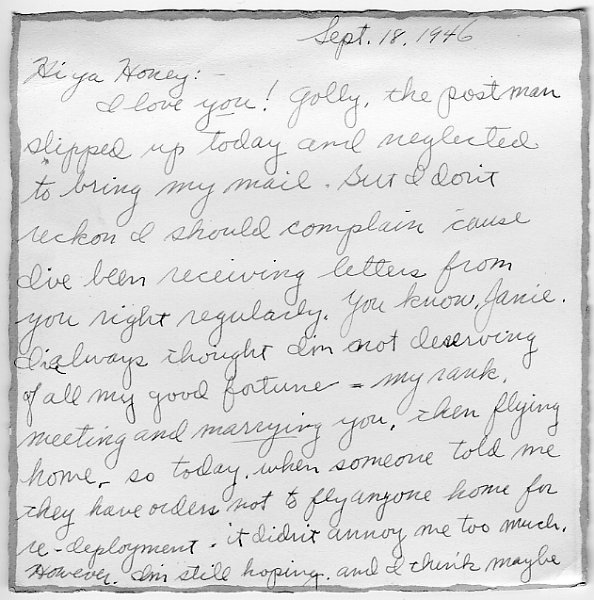 Sept. 18, 1946
Hi ya Honey: -
I love you! Golly, the postman
slipped up today and neglected
to bring my mail. But I don't
reckon I should complain 'cause
I've been receiving letters from
you right regularly. You know, Janie.
I've always thought I'm not deserving
of all my good fortune - my rank,
meeting and marrying you, then flying
home, so today, when someone told me
they have orders not to fly anyone home for
re-deployment - it didn't annoy me too much.
However, I'm still hoping, and I think maybe